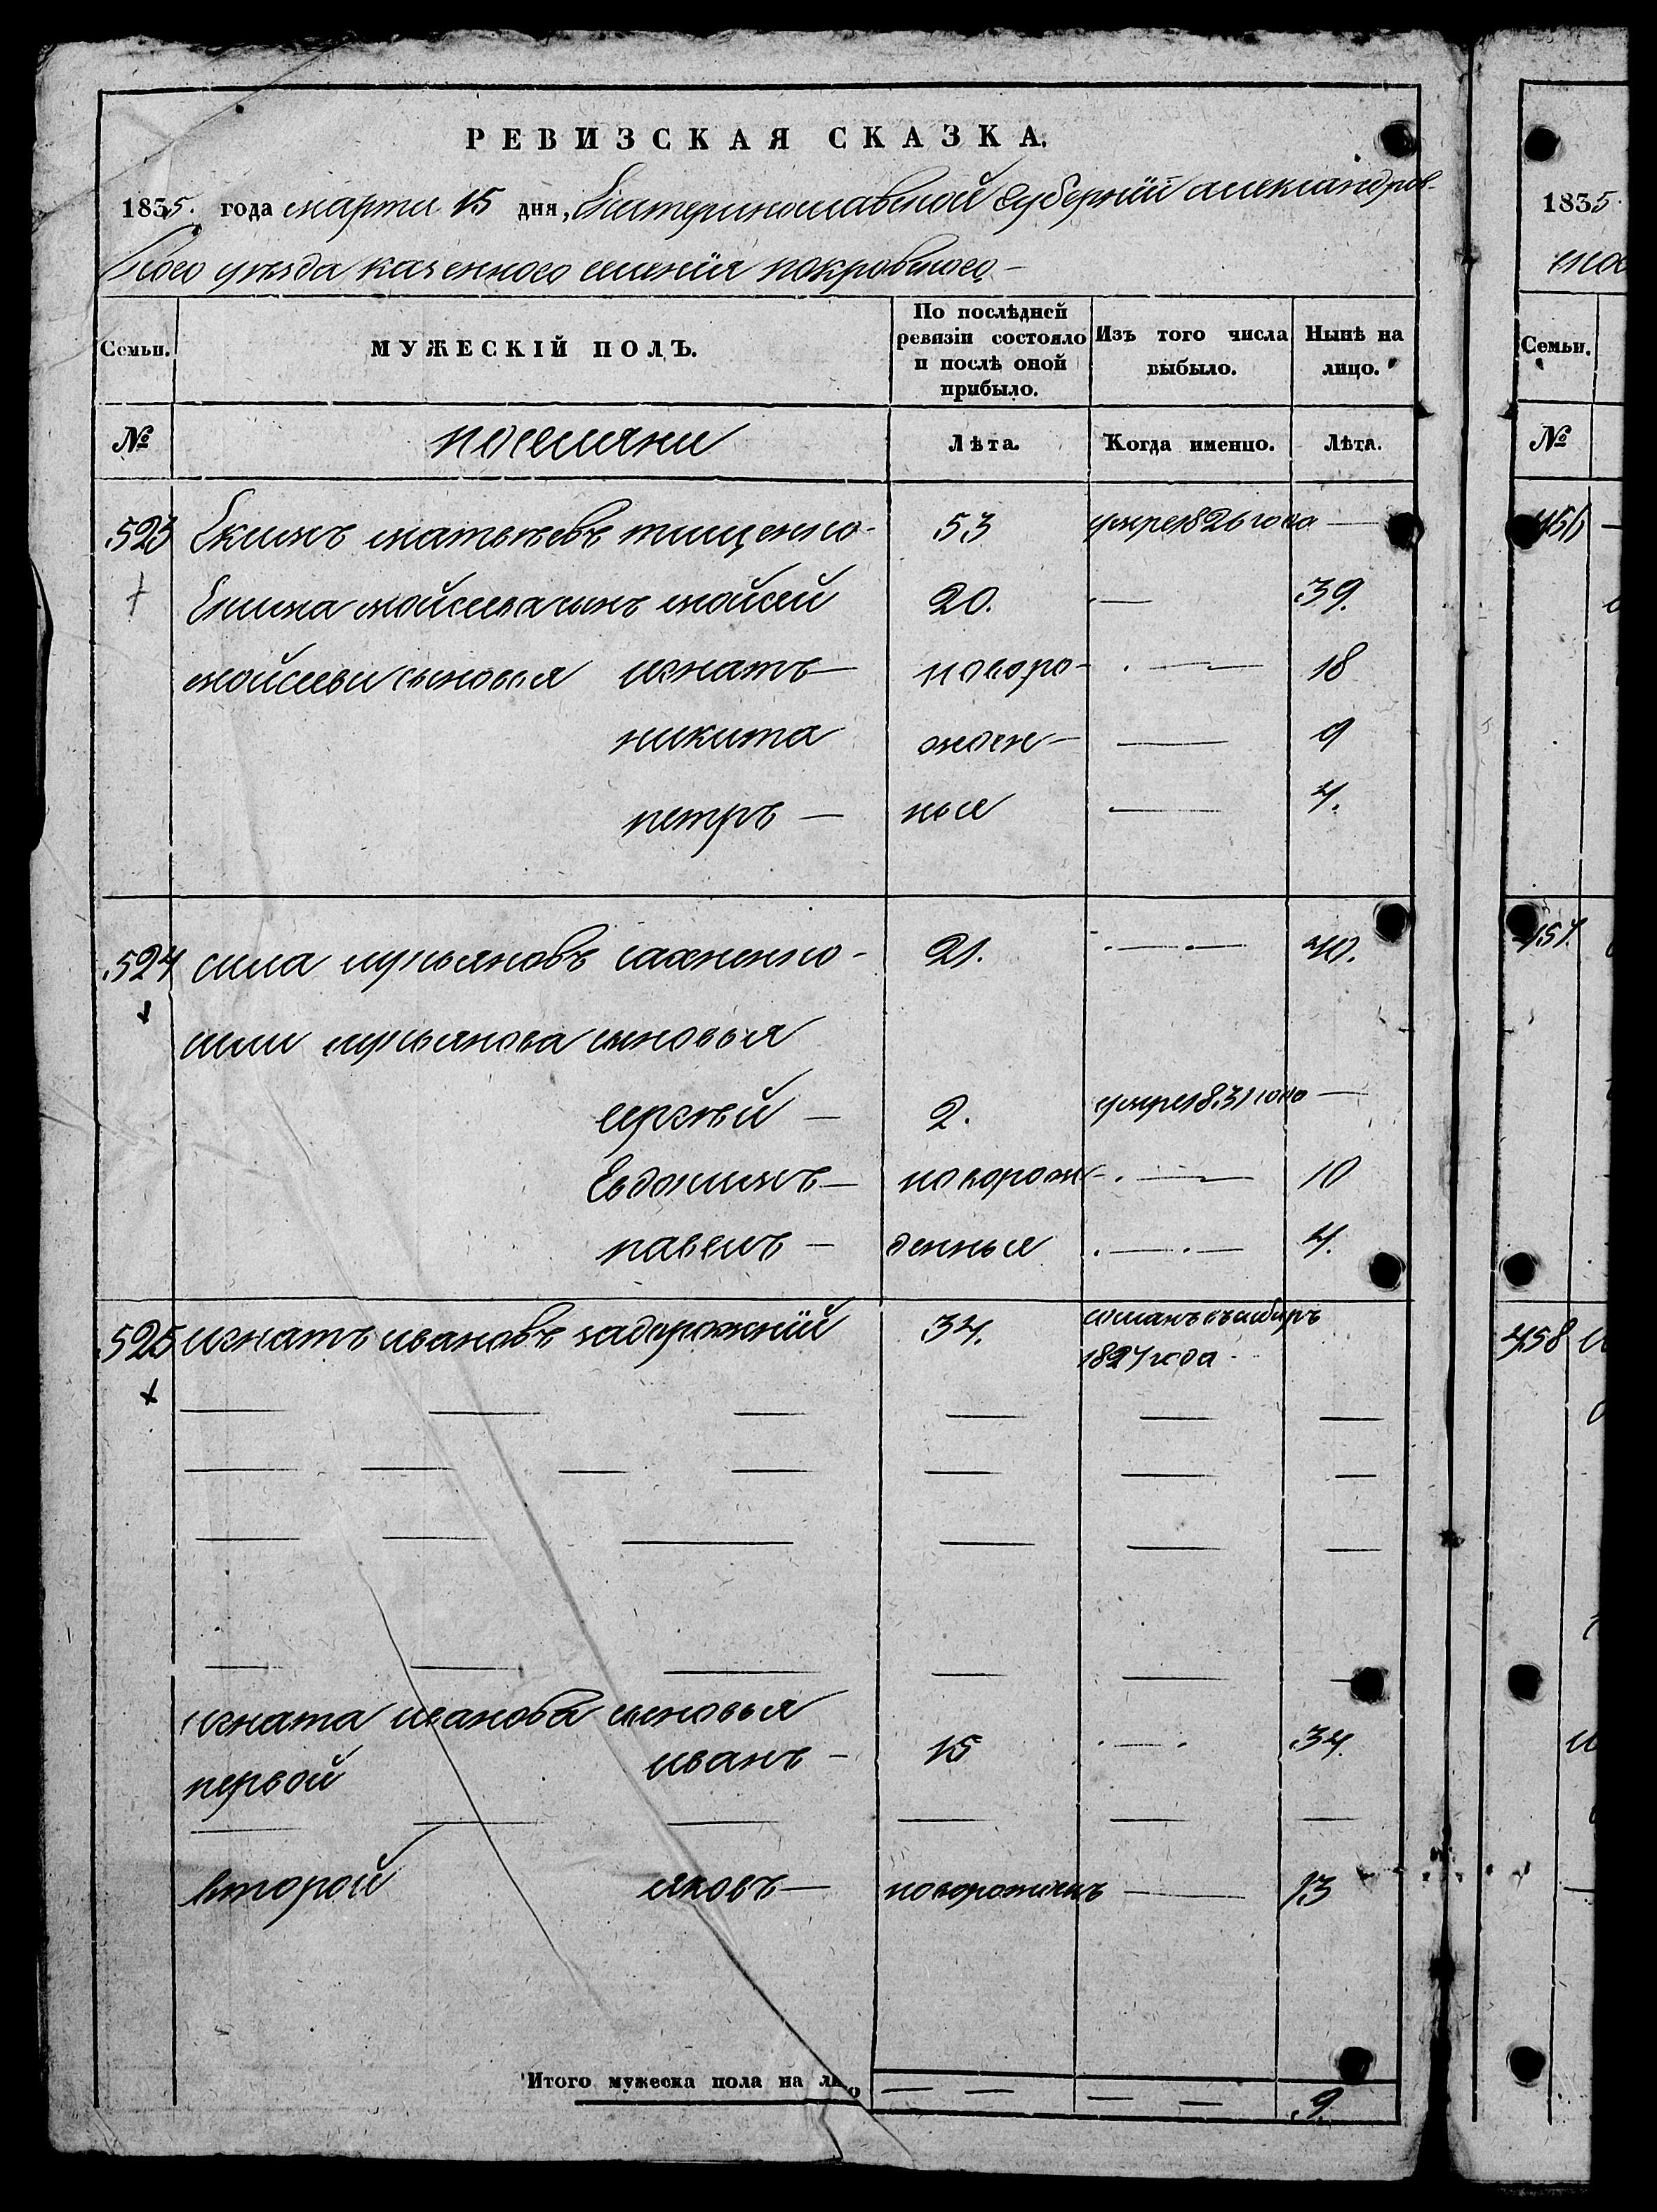 РЕВИЗСКАЯ СКАЗКА.
1835. года марта 15 дня, Екатеринославской губернии александров-
скаго уезда казенного селения покровского
Семьи. МУЖЕСКІЙ ПОЛЪ. По послѣдней ревизіи состояло и послѣ оной прибыло. Изъ того числа выбыло. Нынѣ на лицо.
№ поселяни Лѣта. Когда именно. Лѣта.
523 Екимъ матвѣевъ тищенко 53 умре 1826 года
мойсей 20. — 39.
мойсеевы сыновья игнатъ — новоро- — 18
никита жден- — 9
петръ — ныя — 4.
524 сила лукьяновъ сахненко 21. — 40.
силы лукьянова сыновья
сергѣй — 2. умре 1831 года —
Евдокимъ — новорож- — 10
павелъ — денныя — 4.
525 игнатъ ивановъ задорожній 34. сосланъ въ сибирь
1827 года
игната иванова сыновья
первой иванъ — 15 — 34.
второй яковъ — новорожденъ — 13
Итого мужеска пола на лицо 9.
1835
Семьи.
№
456
457
458